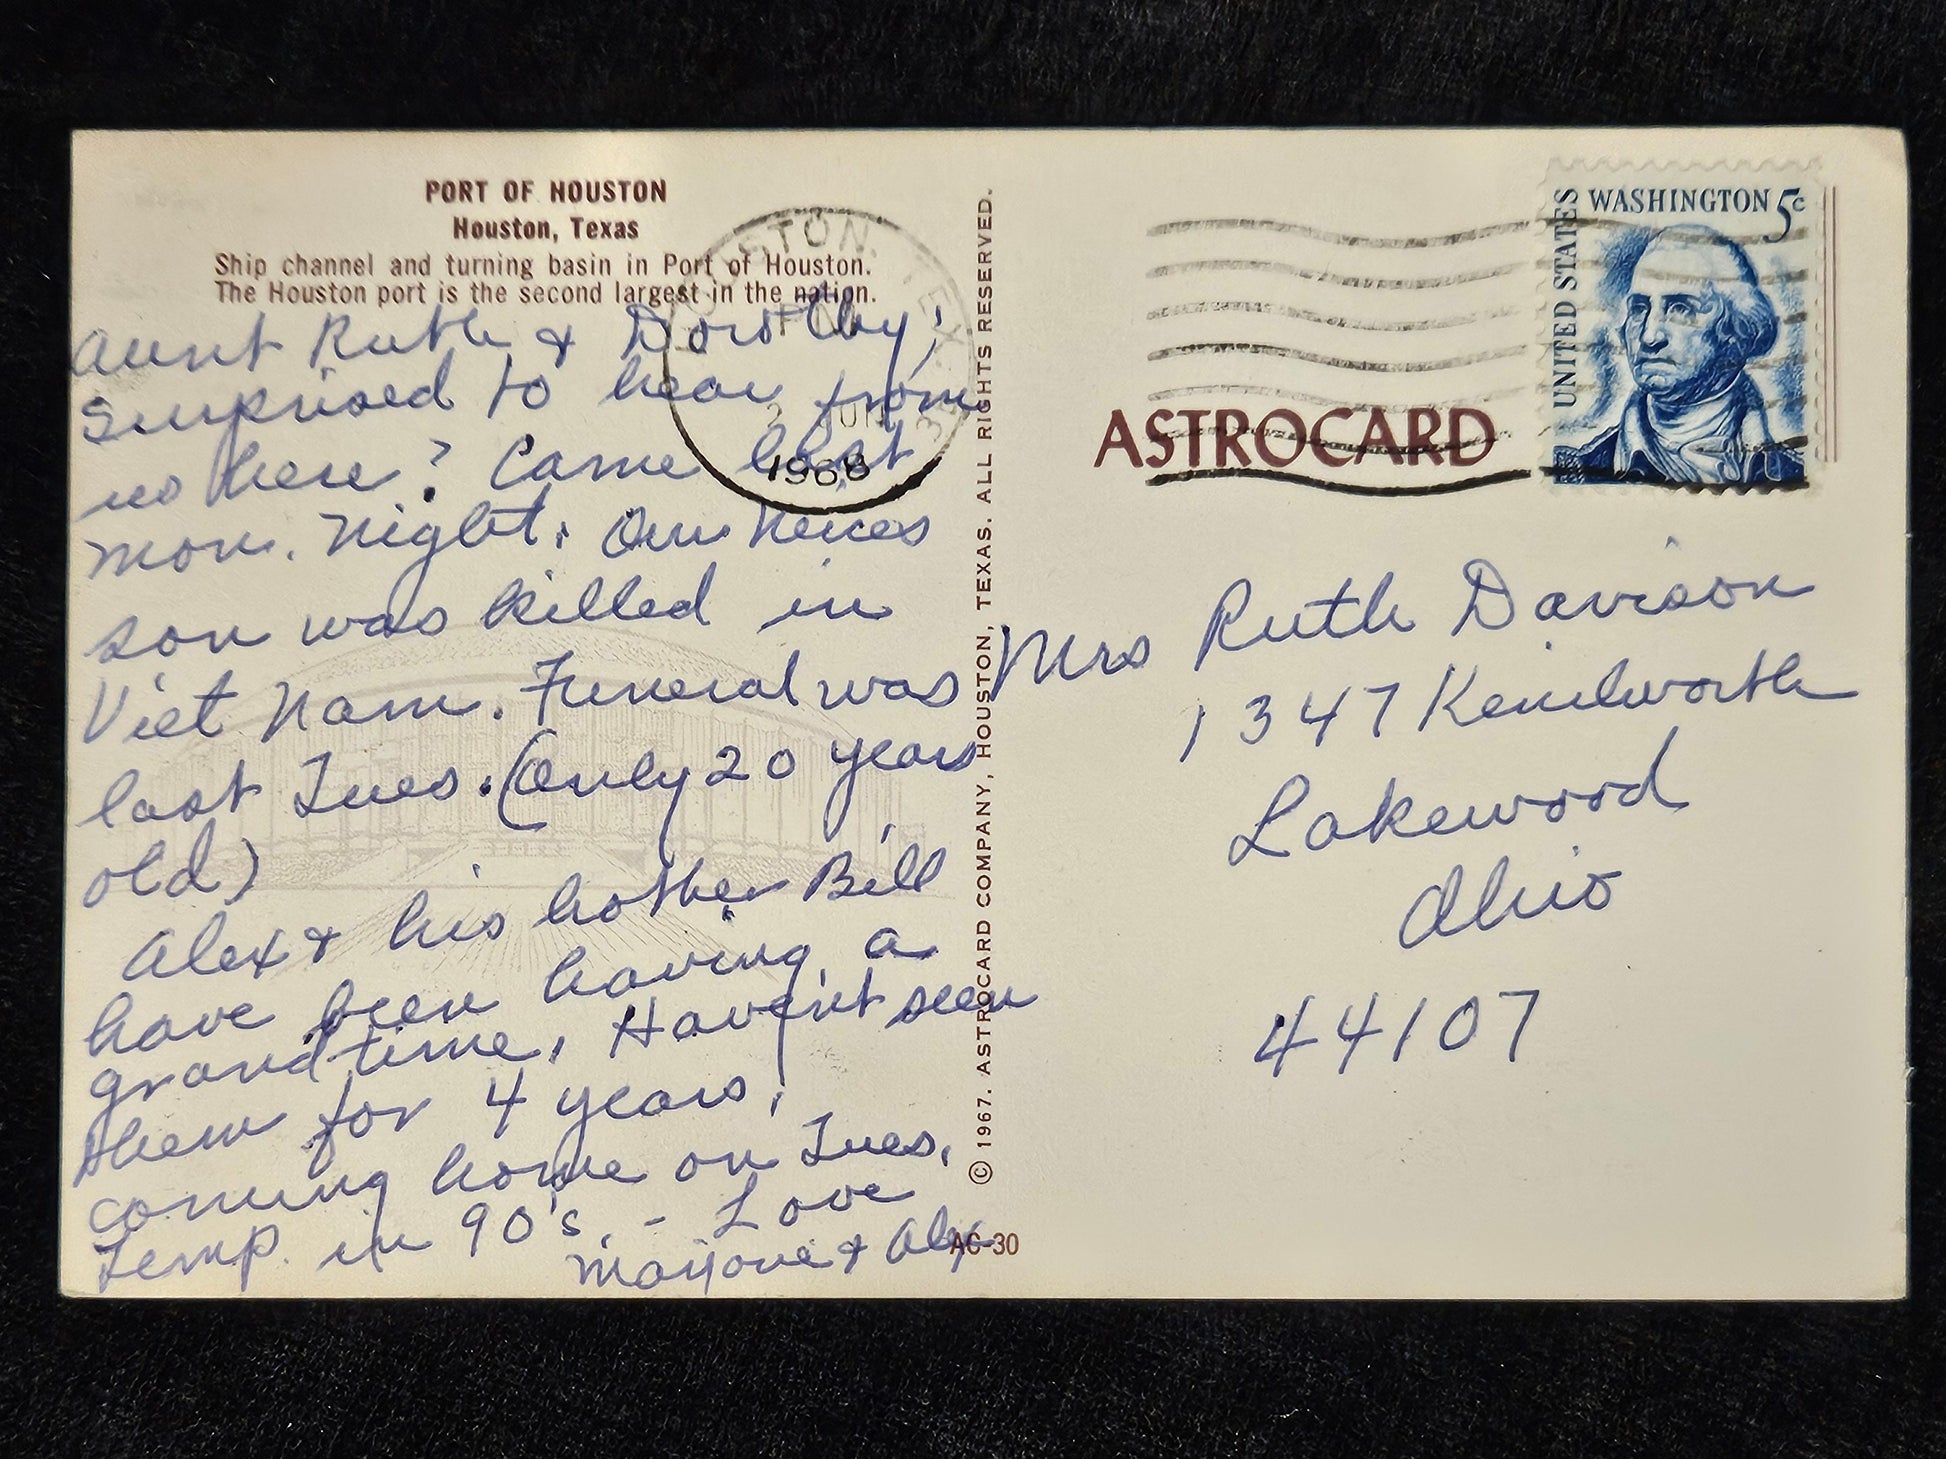 PORT OF HOUSTON
Houston, Texas
Ship channel and turning basin in Port of Houston.
The Houston port is the second largest in the nation.
Aunt Ruth & Dorothy;
Surprised to hear from
us here? Came last
Mon. Night. Our neices
son was killed in
Viet Nam. Funeral was
last Tues. (Only 20 years
old)
Alex & his brother Bill
have been having a
grand time. Haven't seen
them for 4 years.
coming home on Tues.
Temp. in 90's - Love
Marjorie & Alex
AC-30
© 1967. ASTROCARD COMPANY, HOUSTON, TEXAS. ALL RIGHTS RESERVED.
HOUSTON, TEX.
PM
JUN
1968
ASTROCARD
UNITED STATES
WASHINGTON 5c
Mrs Ruth Davison
1347 Kenilworth
Lakewood
Ohio
44107